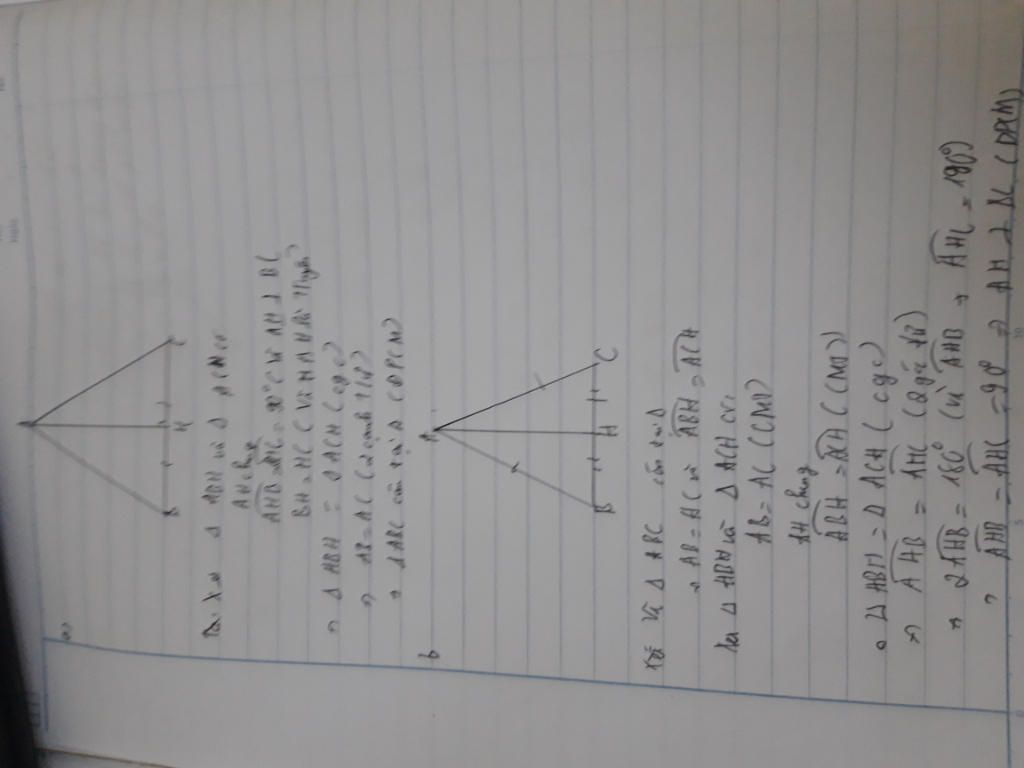 a)
A
B
H
C
Ta xét Δ ABH và Δ ACH có
AH chung
AHB = AHC = 90° ( vì AH ⊥ BC
BH = HC ( vì H
⇒ Δ ABH = Δ ACH ( cgc )
⇒ AB = AC ( 2 cạnh )
⇒ ΔABC cân tại A ( ĐPCM )
b
A
B
H
C
Vì Δ ABC cân tại A
⇒ AB = AC và ABH = ACH
Δ ABH và Δ ACH có
AB = AC ( CMT )
AH chung
ABH = ACH ( CMT )
⇒ Δ ABH = Δ ACH ( cgc )
⇒ AHB = AHC ( 2 góc )
⇒ 2AHB = 180° ( vì AHB + AHC = 180° )
⇒ AHB = AHC = 90° ⇒ AH ⊥ BC ( ĐPCM )